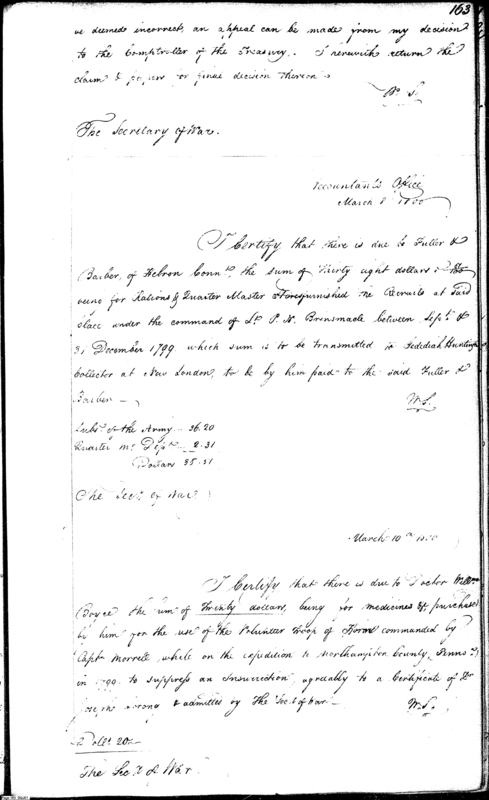 163
be deemed incorrect, an appeal can be made from my decision
to the Comptroller of the Treasury. I herewith return the
claim & papers for final decision thereon.
W. S.
The Secretary of War.
Accountants Office
March 8 1800
I Certify that there is due to Fuller &
Barber, of Hebron Connt. the sum of Thirty eight dollars &
being for Rations & Quarter Master Stores furnished the Recruits at said
place under the command of Lt. P. N. Brinsmade between Septr. &
31 December 1799 which sum is to be transmitted to Jedediah Huntington
Collector at New London, to be by him paid to the said Fuller &
Barber
W. S.
Subs. of the Army 36.20
Quarter Mr. Dept. 2.31
Dollars 38.51
The Secy. of War
March 10th 1800
I Certify that there is due to Doctor Willm.
Boyce the sum of Twenty dollars, being for medicines &c purchased
by him for the use of the Volunteer Troop of Horse commanded by
Capt. Morrell while on the expedition to Northampton County, Penns.
in 1799 to suppress an Insurrection, agreably to a Certificate of Dr
Joseph Strong & admitted by the Sec. of War
W. S.
Dolls. 20
The Sec.y of War